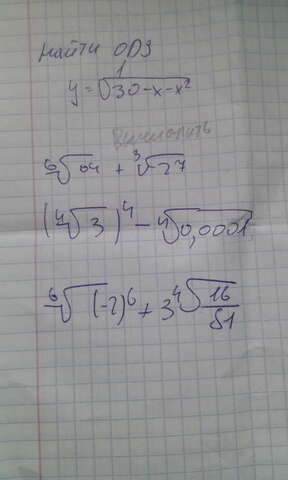 Найти ОДЗ
y = 1/√(30-x-x²)
Вычислить
⁶√64 + ³√27
(⁴√3)⁴ - ⁴√0,0001
⁶√(-2)⁶ + 3 ⁴√(16/81)